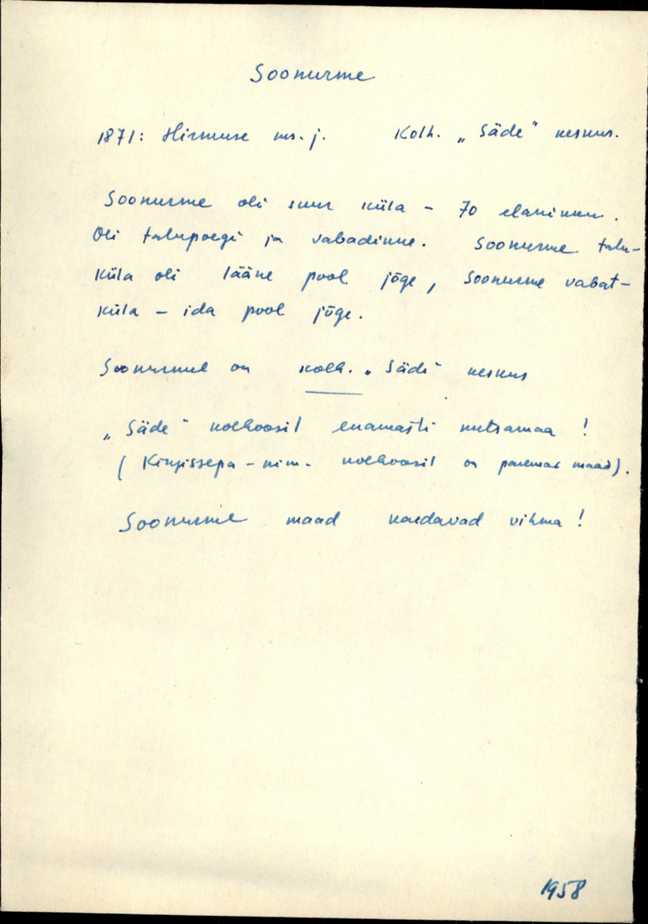 Soonurme
1871: Hirmuse ms. j. Kolh. „Säde" keskus.
Soonurme oli suur küla – 70 elanikku.
Oli talupoegi ja vabadikke. Soonurme talu-
küla oli lääne pool jõge, Soonurme vabat-
küla – ida pool jõge.
Soonurmel on kolh. „Säde" keskus
„Säde" kolhoosil enamasti metsamaa!
(Kingissepa-nim. kolhoosil on paremad maad).
Soonurme maad kardavad vihma!
1958